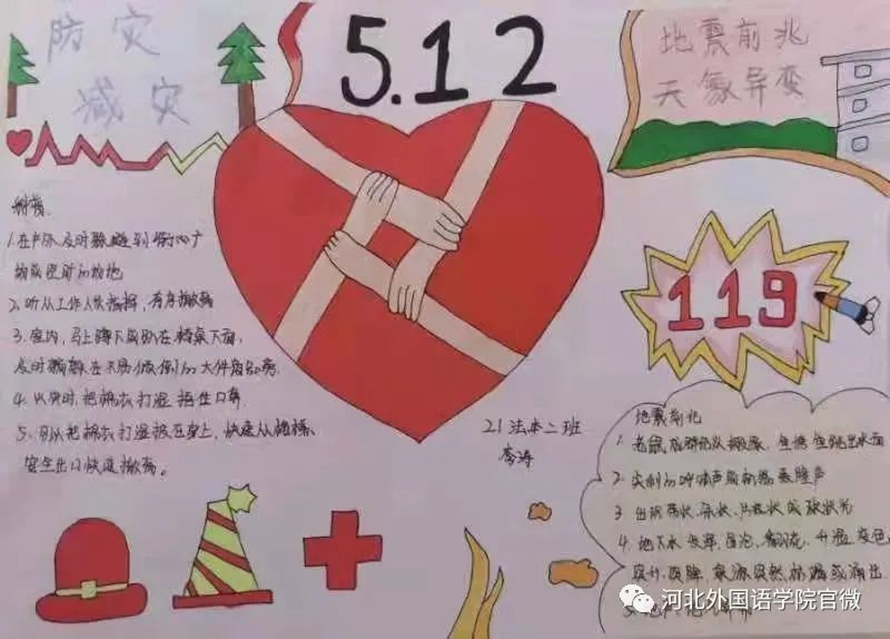 防灾
减灾
5.12
地震前兆
天象异变
1.在户外及时躲避到
场或空旷的场地
2.听从工作人员指挥，有序撤离
3.室内，马上蹲下或趴在椅桌下面，
及时躲在不易倾倒的大件
4.火灾时，把棉衣打湿捂住口鼻
5.把棉衣打湿披在身上，快速从楼梯、
安全出口快速撤离。
119
21法本二班
李涛
地震前兆
1.老鼠成群搬家、鱼跳出水面
2.尖利的
3.出现带状、条状、片状或球状光
4.地下水发浑、冒泡、翻花、升温、变色、
突升、突降、泉源突然枯竭或涌出
河北外国语学院官微